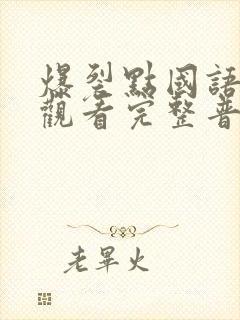 爆裂點國語
觀看完整普
老畢火